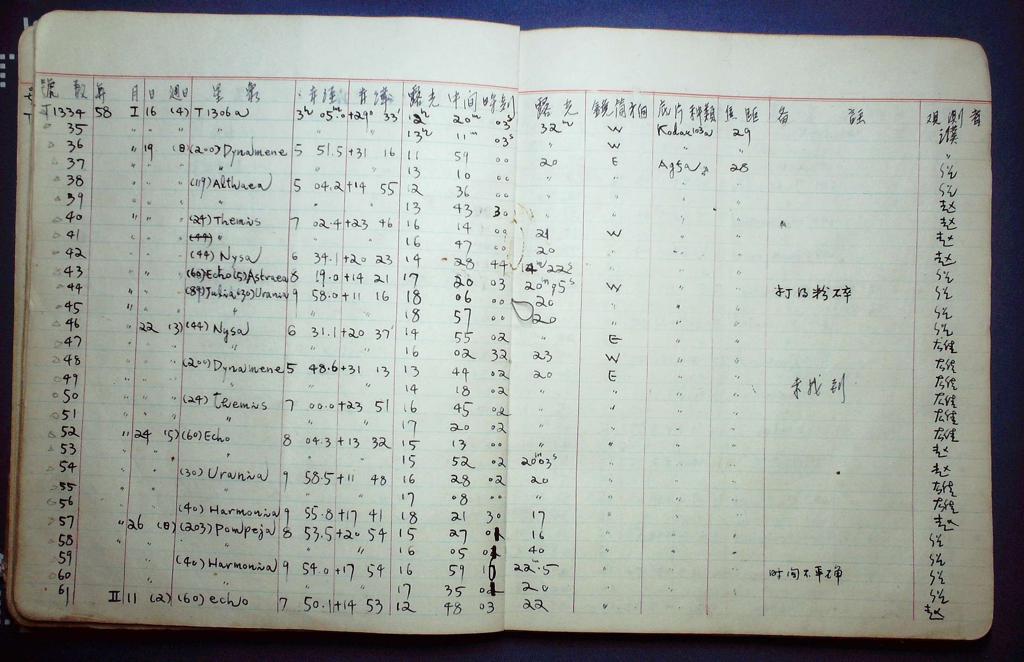 號數 年 月 日 週日 星 赤經 赤緯 露光中間時刻 露光 鏡筒方向 底片種類 焦距 備 註 觀測者
T1334 58 I 16 (4) T1306a 3h 05m.0 +29° 33' 12h 20m 03s 32m W Kodak103a 29
35 " " " " 13h 11m 03s " W " "
36 " 19 (日) (200) Dynamene 5 51.5 +31 16 11 59 00 20 E Agfa 28
37 " " " " 13 10 00 " " " "
38 (119) Althaea 5 04.2 +14 55 12 36 00 " " " "
39 " " " " 13 43 30 " " " " 赵
40 " " (24) Themis 7 02.4 +23 46 16 14 00 21 W " " 赵
41 " " (44) " 16 47 00 20 " " " 赵
42 " " (44) Nysa 6 34.1 +20 23 14 28 44 14m 22s " " " 赵
43 " " (60) Echo (5) Astraea 8 19.0 +14 21 17 20 03 20m 95s W " "
44 " " (89) Julia (30) Urania 9 58.0 +11 16 18 06 00 20 " " " 打的粉碎
45 " " " " 18 57 00 20 " " "
46 " 22 (3) (44) Nysa 6 31.1 +20 37 14 55 02 " E " "
47 " " " " 16 02 32 23 W " "
48 (200) Dynamene 5 48.6 +31 13 13 44 02 20 E " "
49 " " " " 14 18 02 " " " " 未找到
50 " " (24) Themis 7 00.0 +23 51 16 45 02 " " " "
51 " " " " 17 20 02 " " " "
52 " 24 (5) (60) Echo 8 04.3 +13 32 15 13 00 " " " "
53 " " " " 15 52 02 20m03s " " " 赵
54 (30) Urania 9 58.5 +11 48 16 28 02 20 " " " 赵
55 " " " " 17 08 00 " " " "
56 " " (40) Harmonia 9 55.8 +17 41 18 21 30 17 " " "
57 " 26 (日) (203) Pompeja 8 53.5 +20 54 15 27 16 " " " 赵
58 " " " " 16 05 40 " " "
59 (40) Harmonia 9 54.0 +17 54 16 59 22.5 " " "
60 " " " " 17 35 20 " " " 时间不準确
61 II 11 (2) (60) echo 7 50.1 +14 53 12 48 03 22 " " " 赵